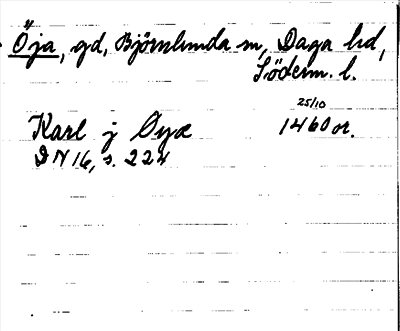 Öja, gd, Björnlunda sn, Daga hd,
Söderm. l.
25/10
Karl j Öyæ 1460 or.
D N 16, s. 224